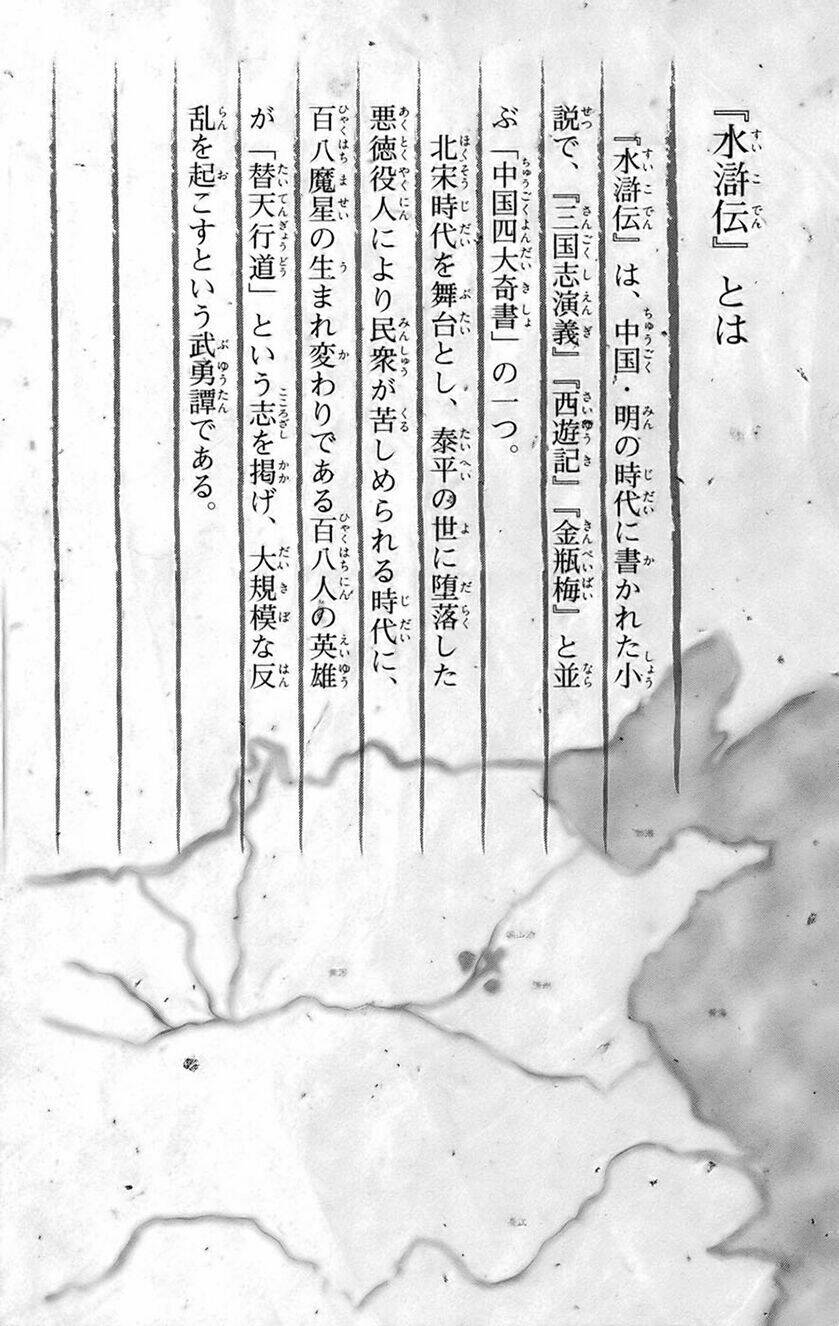 『水滸伝』とは
『水滸伝』は、中国・明の時代に書かれた小
説で、『三国志演義』『西遊記』『金瓶梅』と並
ぶ「中国四大奇書」の一つ。
北宋時代を舞台とし、泰平の世に堕落した
悪徳役人により民衆が苦しめられる時代に、
百八魔星の生まれ変わりである百八人の英雄
が「替天行道」という志を掲げ、大規模な反
乱を起こすという武勇譚である。
渤海
梁山泊
黄河
黄海
長江